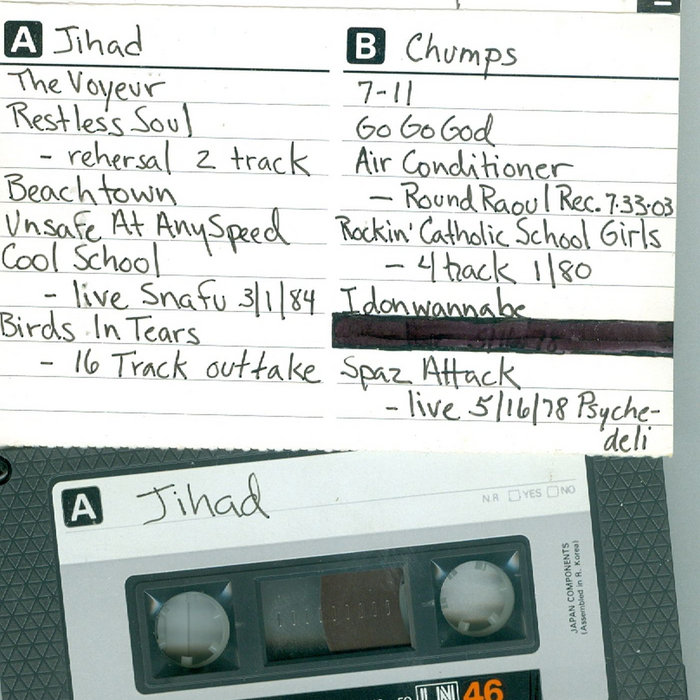 A Jihad
The Voyeur
Restless Soul
- rehersal 2 track
Beachtown
Unsafe At Any Speed
Cool School
- live Snafu 3/1/84
Birds In Tears
- 16 Track outtake
B Chumps
7-11
Go Go God
Air Conditioner
- Round Raoul Rec. 7·33·03
Rockin' Catholic School Girls
- 4 track 1/80
Idonwannabe
Spaz Attack
- live 5/16/78 Psyche-
deli
A Jihad
N.R YES NO
JAPAN COMPONENTS
(Assembled in R. Korea)
LN 46